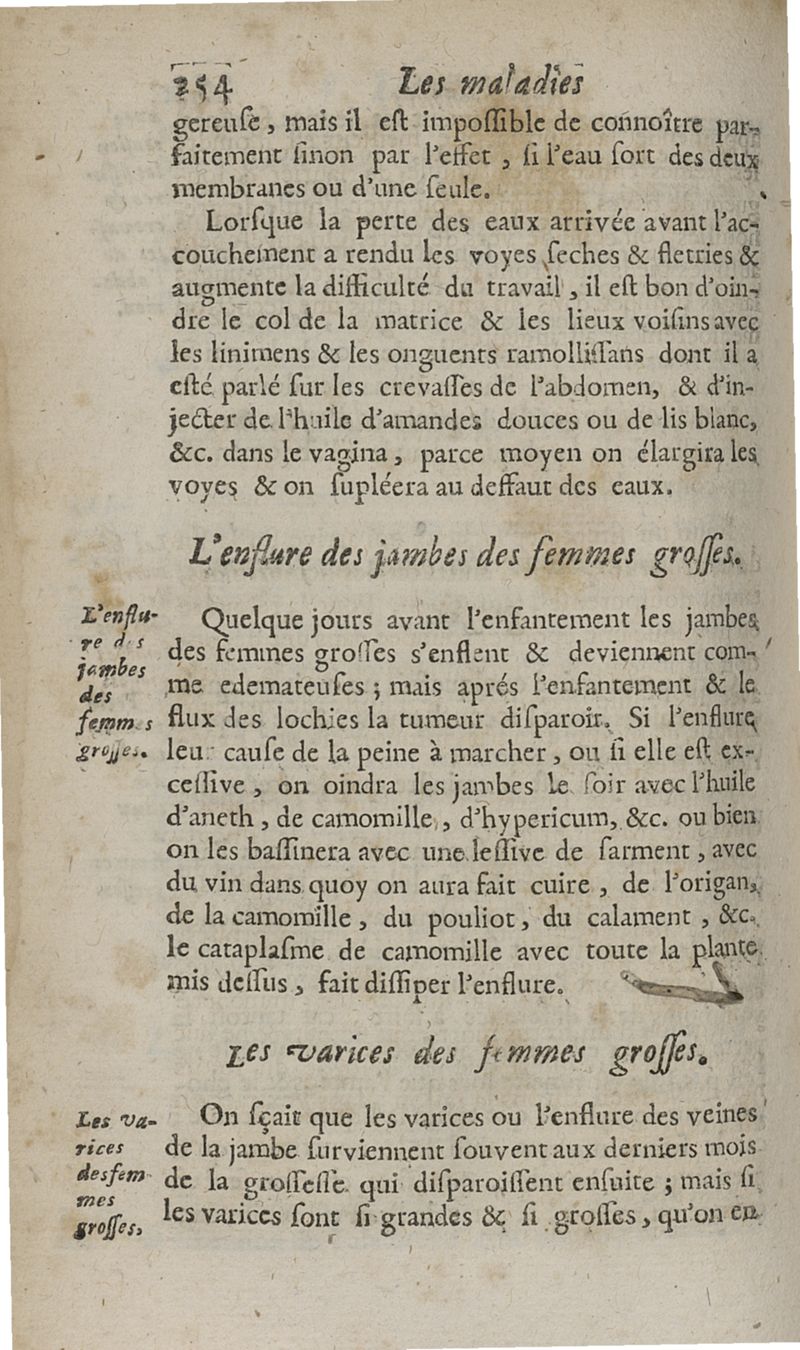 254 Les maladies
gereuſe, mais il eſt impoſſible de connoître par-
faitement ſinon par l'effet, ſi l'eau ſort des deux
membranes ou d'une ſeule.
Lorſque la perte des eaux arrivée avant l'ac-
couchement a rendu les voyes ſeches & fletries &
augmente la difficulté du travail, il eſt bon d'oin-
dre le col de la matrice & les lieux voiſins avec
les linimens & les onguents ramolliſſans dont il a
eſté parlé ſur les crevaſſes de l'abdomen, & d'in-
jecter de l'huile d'amandes douces ou de lis blanc,
&c. dans le vagina, parce moyen on élargira les
voyes & on ſupléera au deffaut des eaux.
L'enflure des jambes des femmes groſſes.
L'enflu-
re des
jambes
des
femmes
groſſes.
Quelque jours avant l'enfantement les jambes
des femmes groſſes s'enflent & deviennent com-
me edemateuſes ; mais aprés l'enfantement & le
flux des lochies la tumeur diſparoit. Si l'enflure
leur cauſe de la peine à marcher, ou ſi elle eſt ex-
ceſſive, on oindra les jambes le ſoir avec l'huile
d'aneth, de camomille, d'hypericum, &c. ou bien
on les baſſinera avec une leſſive de ſarment, avec
du vin dans quoy on aura fait cuire, de l'origan,
de la camomille, du pouliot, du calament, &c.
le cataplaſme de camomille avec toute la plante
mis deſſus, fait diſſiper l'enflure.
Les varices des femmes groſſes.
Les va-
rices
des fem-
mes
groſſes,
On ſçait que les varices ou l'enflure des veines
de la jambe ſurviennent ſouvent aux derniers mois
de la groſſeſſe qui diſparoiſſent enſuite ; mais ſi
les varices ſont ſi grandes & ſi groſſes, qu'on en